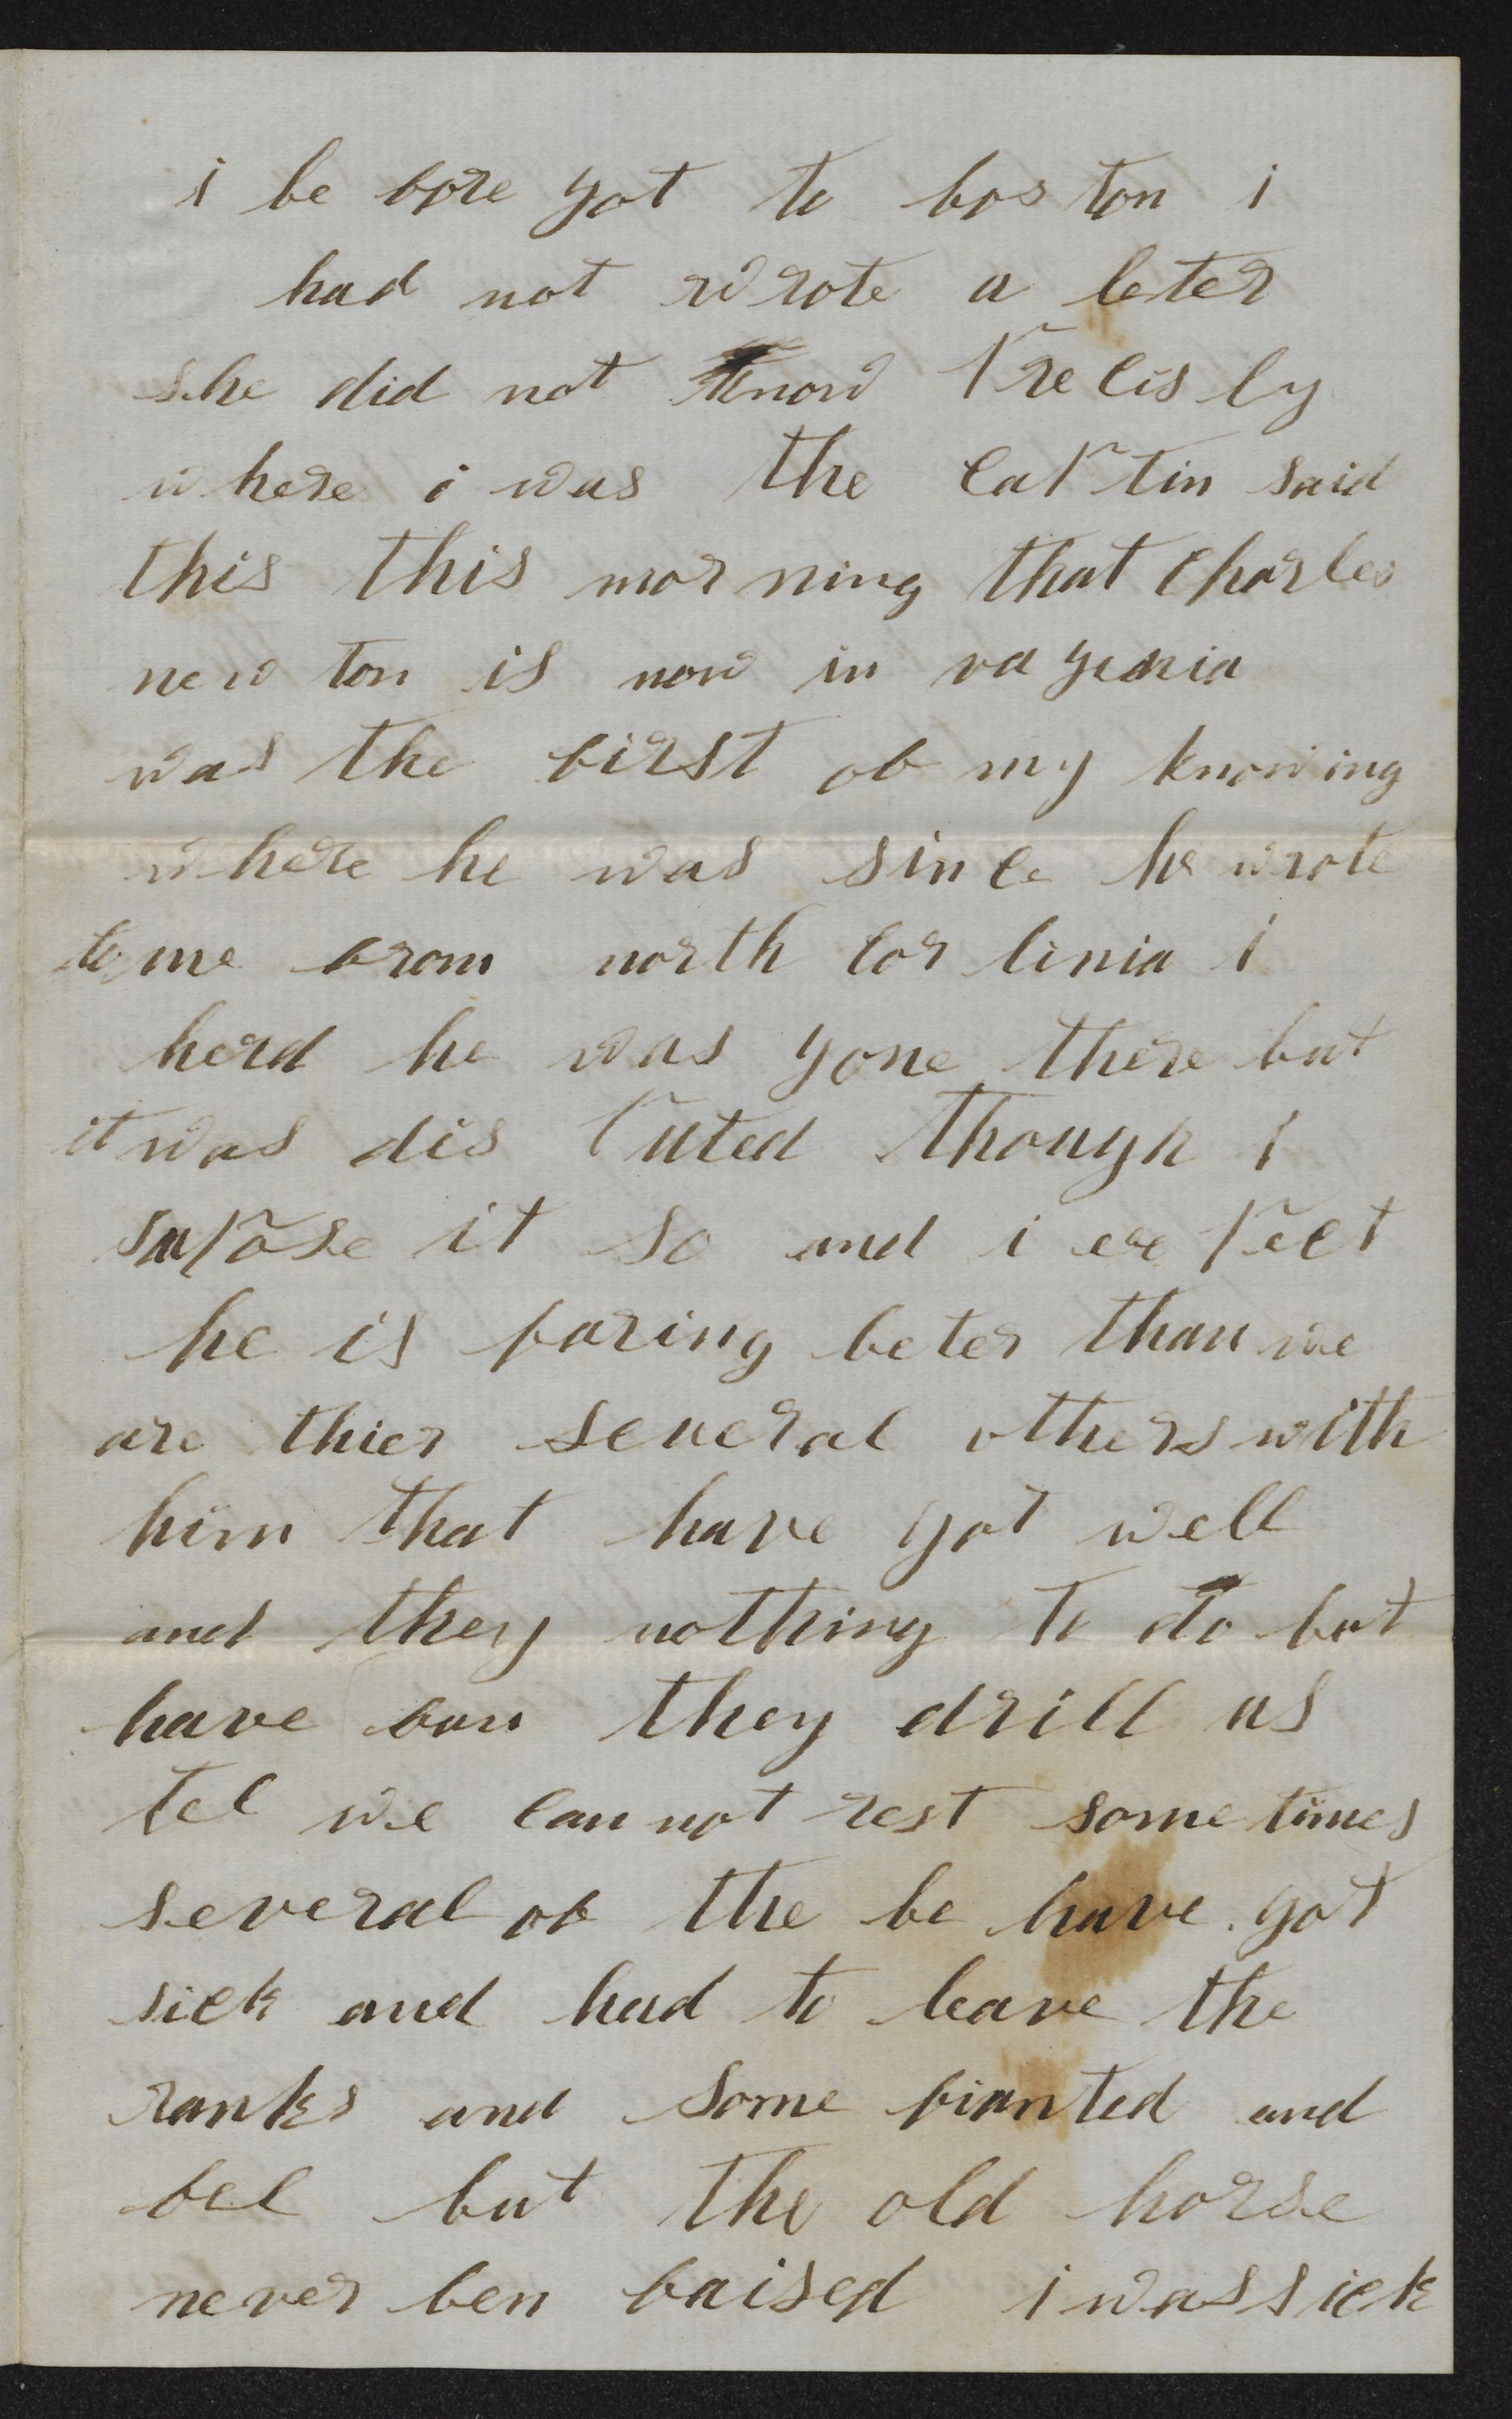 i be fore got to bos ton i
had not wrote a leter
she did not know Precis ly
where i was the Captin said
this this mor ning that Charles
new ton is now in va ginia
was the first of my knowing
where he was since he wrote
to me from north Cor linia i
herd he was gone there but
it was dis Puted though i
supose it so and i ex Pect
he is faring beter than we
are thier several others with
him that have got well
and they nothing to do but
have fun they drill us
tel we can not rest some times
several of the be have got
sick and had to leave the
ranks and some fianted and
fel but the old horse
never ben faised i was sick